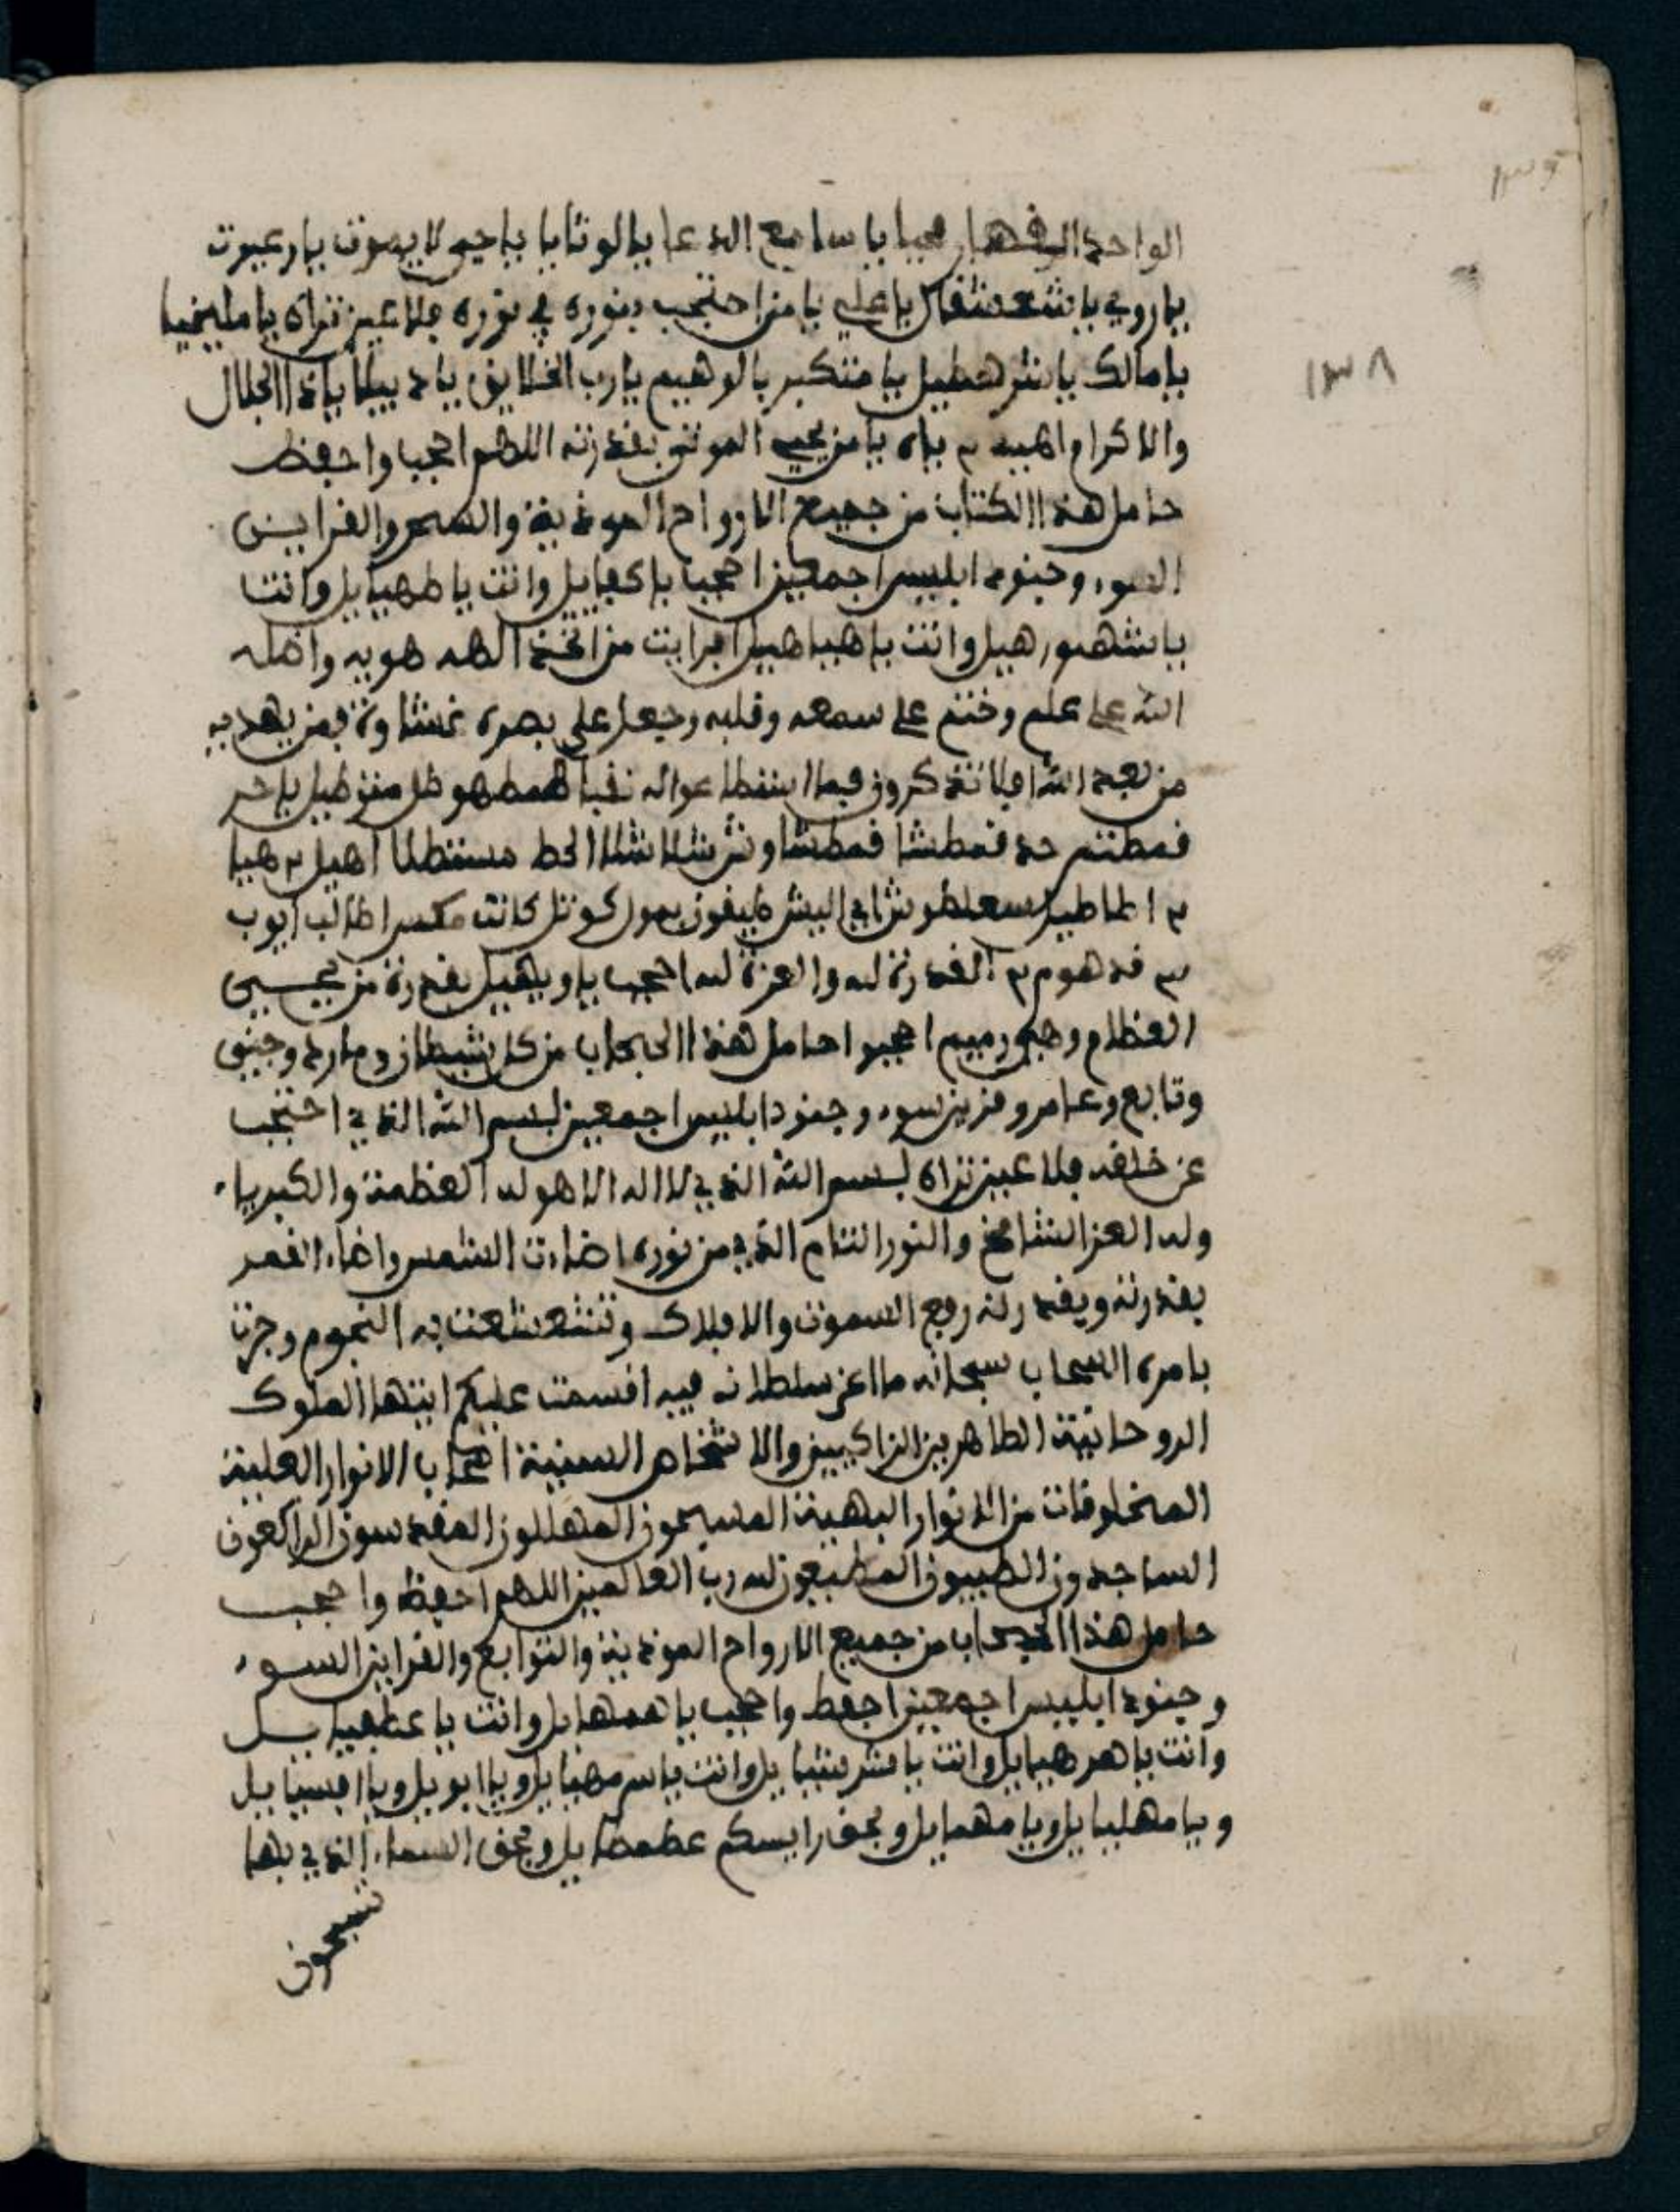 ١٣٩
١٣٨
الواحد القهار محيا يا سامع الدعا يا لوثايا ياحي لا يموت يا رعيوت
ياروي يا شعشقال يا علي يا من احتجب بنوره في نوره فلا عين تراه يا مليخيا
يا مالك يا شرهطيل يا متكبر يا لوهيم يارب الخلايق يا ديبلا ياذا الجلال
والاكرام اهيه م ياه يا من يحي الموتى بقدرته اللهم احجب واحفظ
حامل هذا الكتاب من جميع الارواح الموذية والسحر والقراين
السوء وجنود ابليس اجمعين احجب يا كفيايل وانت يا طهيايل وانت
يا شهورهيل وانت يا هياهيل افرايت من اتخذ الهه هويه واضله
الله على علم وختم على سمعه وقلبه وجعل على بصره غشاوة فمن يهديه
من بعد الله افلا تذكرون
فمطشا فمطشا
ايوب
قدهوم م القدرة لله والعزة لله احجب ياويهيل بقدرة من يحيي
العظام وهي رميم احجبوا حامل هذا الحجاب من كل شيطان ومارد وجني
وتابع وعامر وقرين سوء وجنود ابليس اجمعين بسم الله الذي احتجب
عن خلقه فلا عين تراه بسم الله الذي لا اله الا هو له العظمة والكبرياء
وله العز الشامخ والنور التام الذي من نوره اضاءت الشمس واضاء القمر
بقدرته وبقدرته رفع السموت والافلاك وتشعشعت به النجوم وجرت
بامره السحاب سبحانه ما اعز سلطانه فيه اقسمت عليكم ايتها الملوك
الروحانية الطاهرين الزاكيين والاشخاص السنية اصحاب الانوار العلية
المخلوقات من الانوار البهية المسبحون المهللون المقدسون الراكعون
الساجدون الطيبون المطيعون لله رب العالمين اللهم احفظ واحجب
حامل هذا الحجاب من جميع الارواح الموذية والتوابع والقراين السوء
وجنود ابليس اجمعين احفظ واحجب يا همهايل وانت يا عطهيايل
وانت يا هرهيايل وانت يا شرشيايل وانت يا سرمهيايل ويا ابويل ويا افسيايل
ويا مهليايل ويا مهمايل وبحق رايسكم عظمطايل وبحق السماء الذي بها
تسبحون